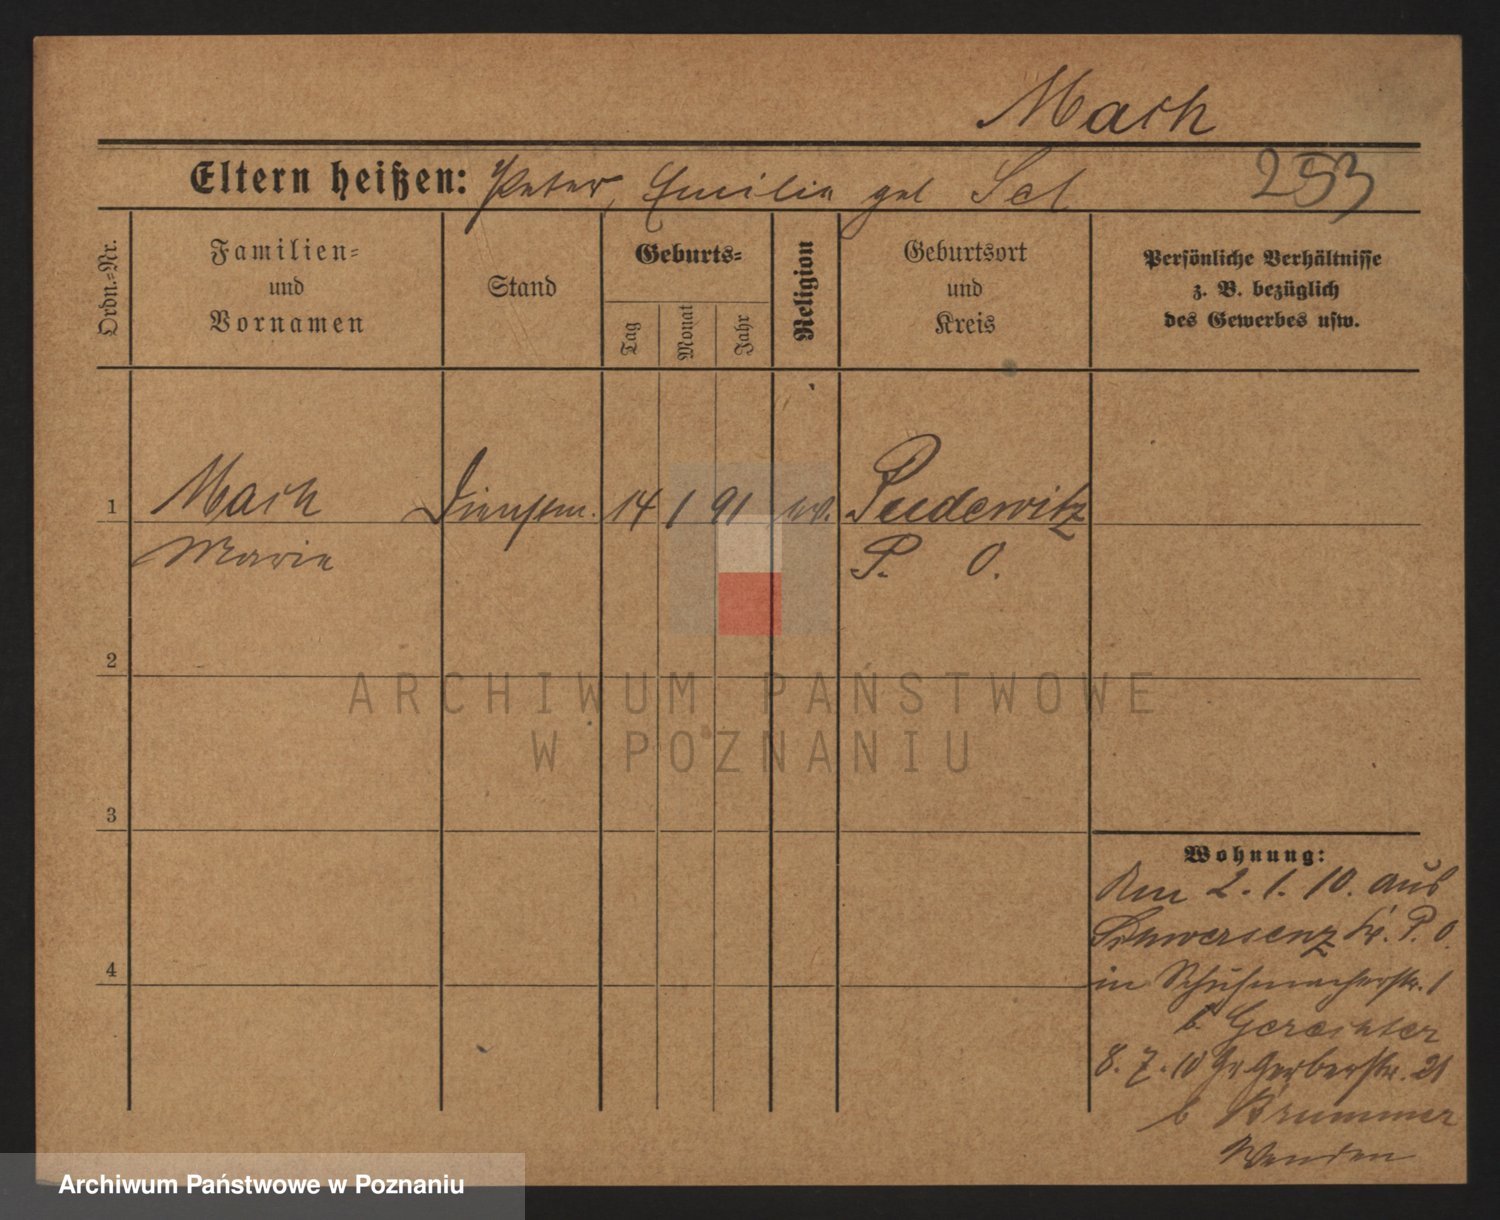 Mach
Eltern heißen: Peter, Emilie geb
253
Ordn.-Nr.
Familien-
und
Vornamen
Stand
Geburts-
Tag
Monat
Jahr
Religion
Geburtsort
und
Kreis
Persönliche Verhältnisse
z. B. bezüglich
des Gewerbes usw.
1 Mach Dienstm. 14 1 91 Pudewitz
Marie P. O.
2
3
4
ARCHIWUM PAŃSTWOWE
W POZNANIU
Wohnung:
Am 2. 1. 10. aus
Schwersenz Kr. P. O.
in Schuhmacherstr. 1
b. Gerechter
8. 7. 10 Gr Gerberstr. 21
b Brummer
Wenden
Archiwum Państwowe w Poznaniu